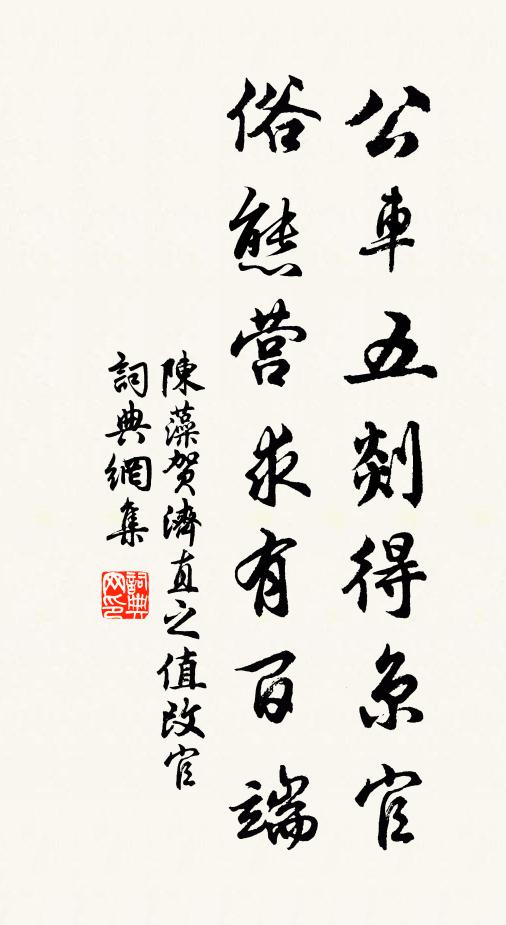 公車五剡得京官
俗態营求有百端
陳藻贺濟直之值改官
詞典網集
詞典网印